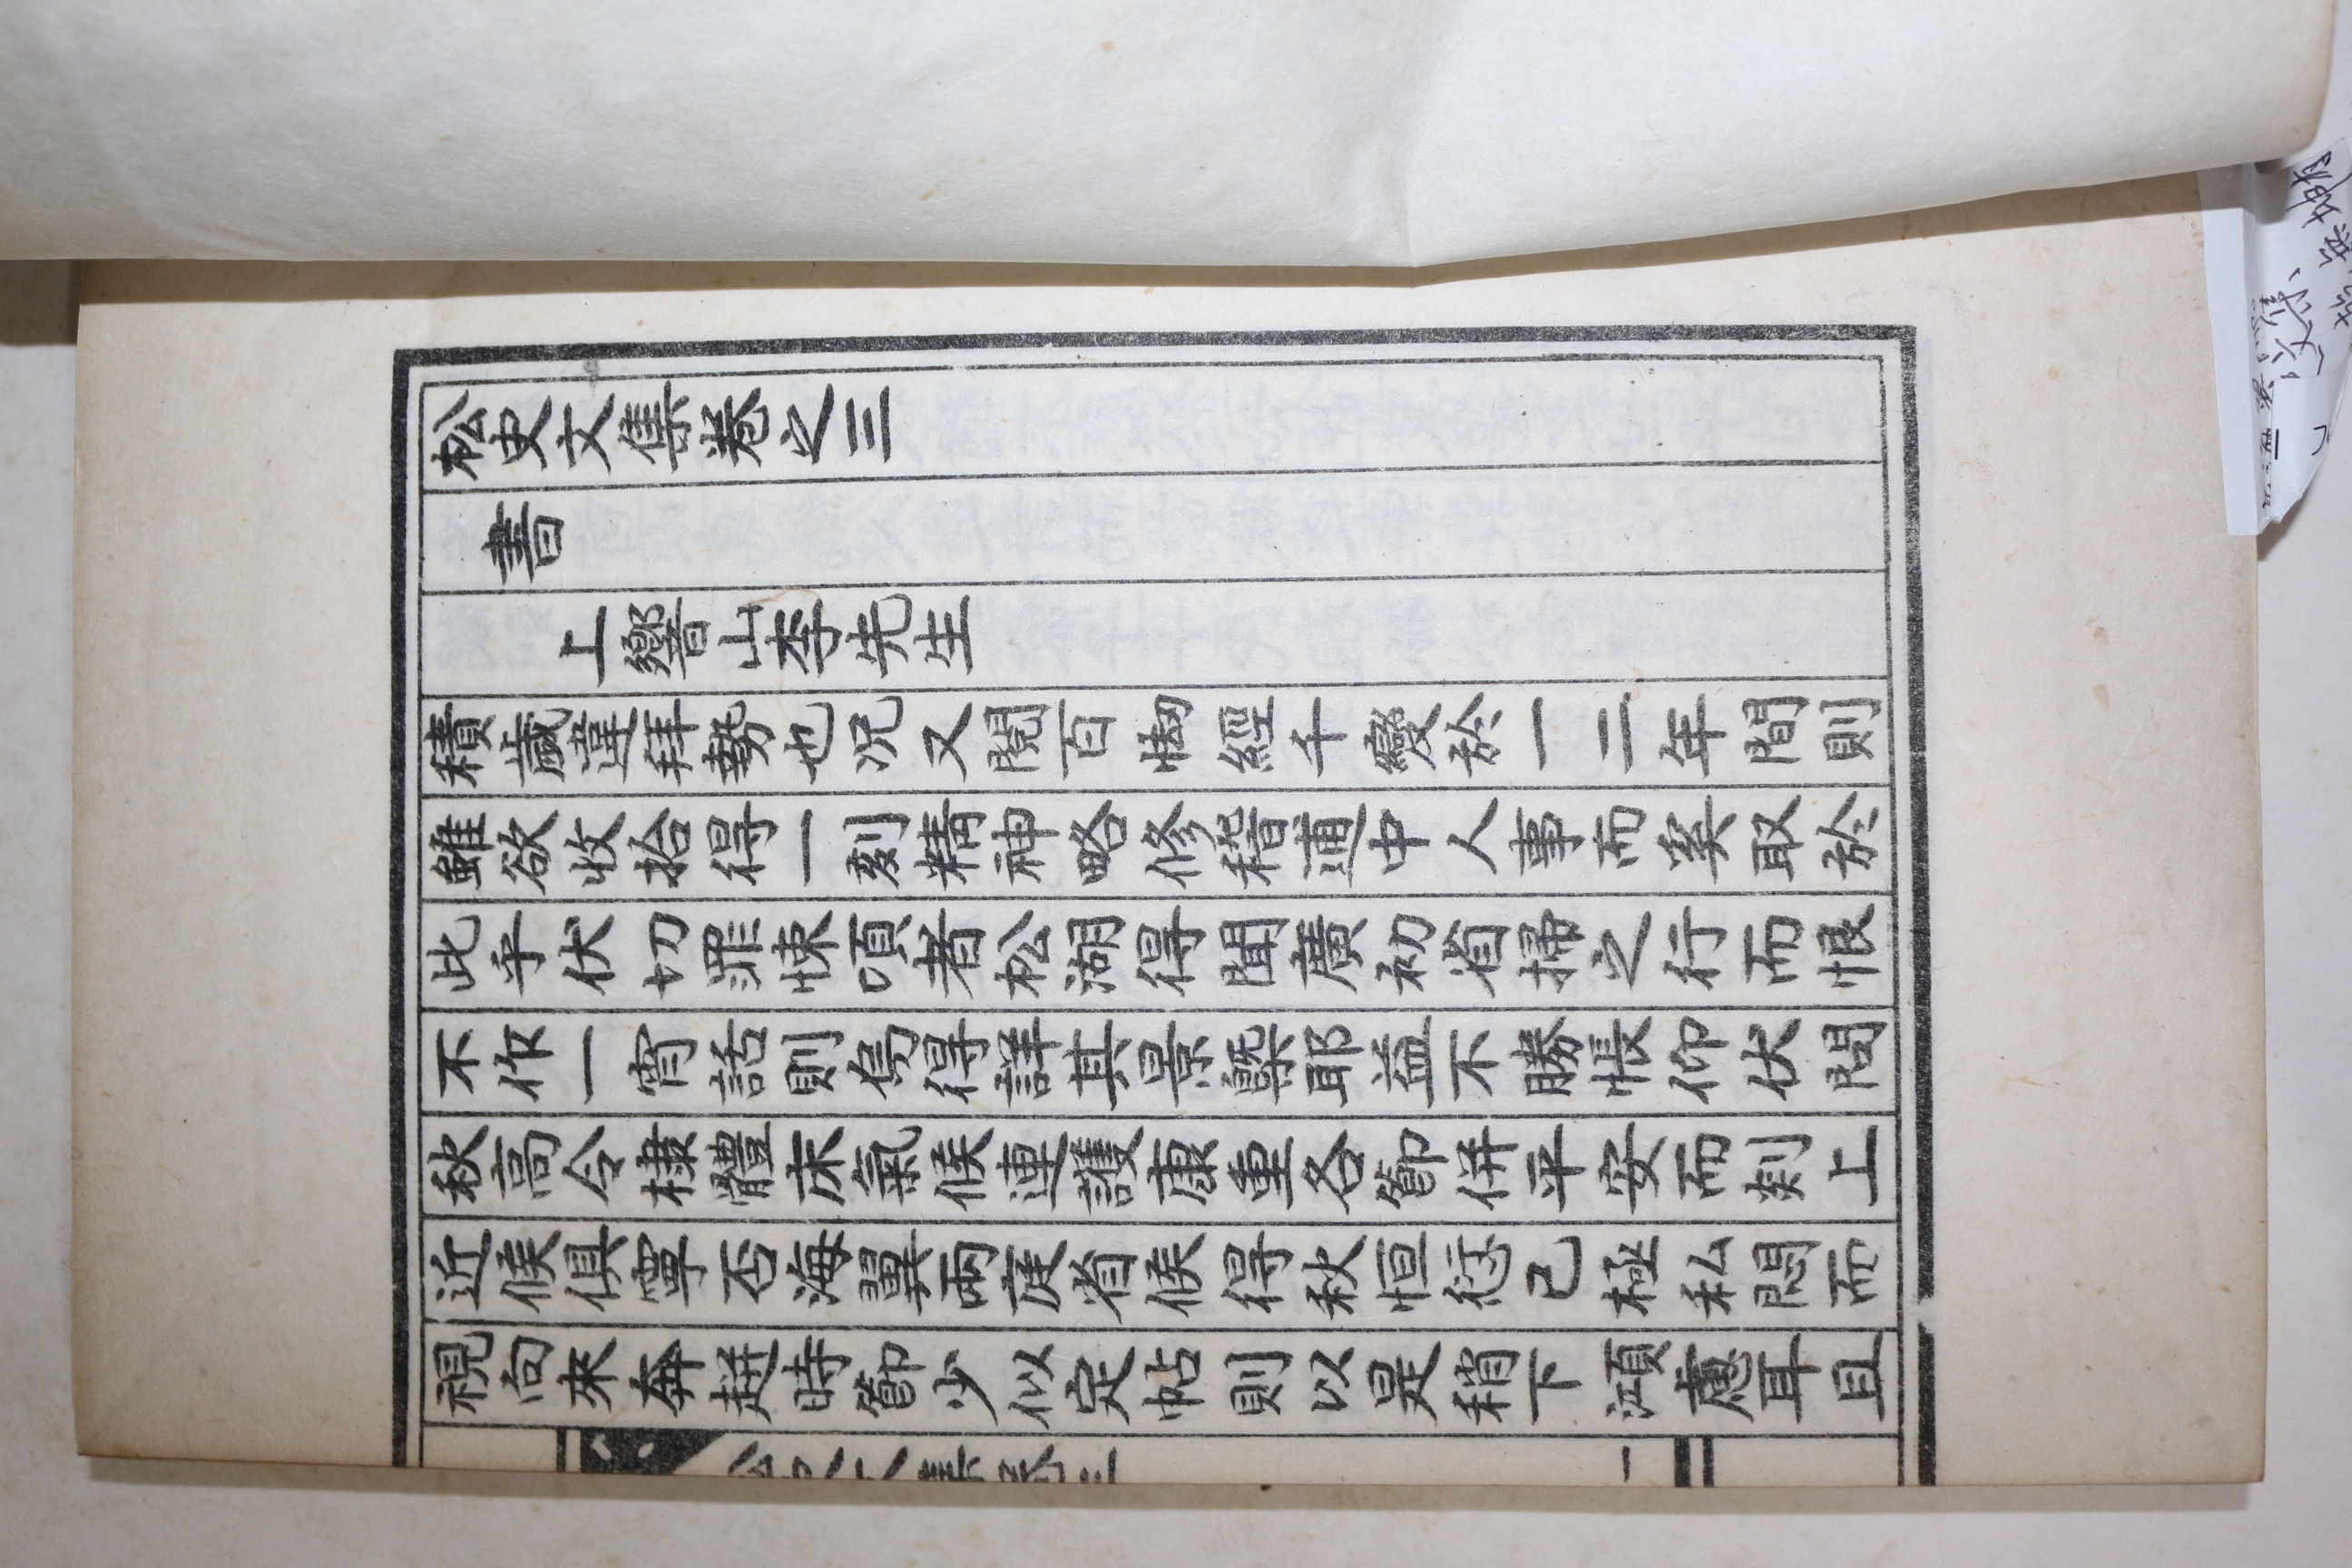 松史文集卷之三
書
上響山李先生
積歲違拜勢也况又閱百恸經千變於一二年間則
雖欲收拾得一刻精神略修稽逋中人事而奚取於
此乎伏切罪悚頃者松湖得聞廣初省掃之行而恨
不作一宵話則烏得詳其景槩耶益不勝悵仰伏問
秋高令棣體床氣候連護康重各節併平安而剡上
近候俱寧否海翼兩庭省候得秋恒愆已極私悶而
視向來奔趨時節少似定帖則以是稍下澒慮耳且
松史文集卷三
一
文集